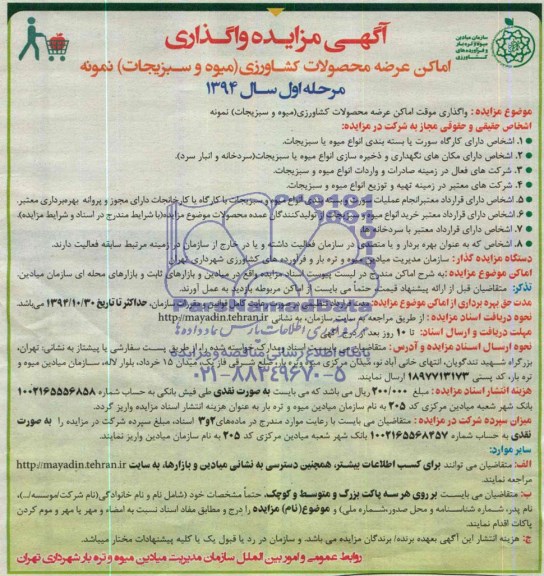 سازمان میادین
میوه و تره بار
و فرآورده های
کشاورزی
آگهی مزایده واگذاری
اماکن عرضه محصولات کشاورزی(میوه و سبزیجات) نمونه
مرحله اول سال ۱۳۹۴
موضوع مزایده : واگذاری موقت اماکن عرضه محصولات کشاورزی(میوه و سبزیجات) نمونه
اشخاص حقیقی و حقوقی مجاز به شرکت در مزایده:
۱. اشخاص دارای کارگاه سورت یا بسته بندی انواع میوه یا سبزیجات.
۲. اشخاص دارای مکان های نگهداری و ذخیره سازی انواع میوه یا سبزیجات(سردخانه و انبار سرد).
۳. شرکت های فعال در زمینه صادرات و واردات انواع میوه و سبزیجات.
۴. شرکت های معتبر در زمینه تهیه و توزیع انواع میوه و سبزیجات.
۵. اشخاص دارای قرارداد معتبر انجام عملیات سورت و بسته بندی انواع میوه و سبزیجات با کارگاه یا کارخانجات دارای مجوز و پروانه بهره‌برداری معتبر.
۶. اشخاص دارای قرارداد معتبر خرید انواع میوه و سبزیجات از تولیدکنندگان عمده محصولات موضوع مزایده(با شرایط مندرج در اسناد و شرایط مزایده).
۷. اشخاص دارای قرارداد معتبر با سردخانه ها.
۸. اشخاص که به عنوان بهره بردار و یا متصدی در سازمان فعالیت داشته و یا در خارج از سازمان در زمینه مرتبط سابقه فعالیت دارند.
دستگاه مزایده گذار : سازمان مدیریت میادین میوه و تره بار و فرآورده های کشاورزی شهرداری تهران
اماکن موضوع مزایده :به شرح اماکن مندرج در لیست پیوست اسناد مزایده واقع در میادین و بازارهای ثابت و بازارهای محله ای سازمان میادین.
تذکر: متقاضیان قبل از ارائه پیشنهاد قیمت حتماً می بایست از اماکن مربوطه بازدید به عمل آورند.
مدت حق بهره برداری از اماکن موضوع مزایده: حداکثر تا تاریخ ۱۳۹۴/۱۰/۳۰ می‌باشد.
نحوه دریافت اسناد مزایده : از طریق مراجعه به سایت سازمان، به نشانی http://mayadin.tehran.ir
مهلت دریافت و ارسال اسناد: تا ۱۰ روز بعد از درج آگهی
نحوه ارسال اسناد مزایده و آدرس : متقاضیان می بایست اسناد و مدارک خواسته شده را از طریق پست سفارشی یا پیشتاز به نشانی: تهران،
بزرگراه شهید تندگویان، انتهای خانی آباد نو، میدان مرکزی میوه و تره بار، ضلع شرقی فاز یک، میدان ۱۵ خرداد، بلوار لاله، سازمان میادین میوه و
تره بار، کد پستی ۱۸۹۷۷۱۳۱۷۳ ارسال نمایند.
هزینه انتشار اسناد مزایده : مبلغ ۲۰۰/۰۰۰ ریال می باشد که می بایست به صورت نقدی طی فیش بانکی به حساب شماره ۱۰۰۲۱۶۵۵۵۶۸۵۸
بانک شهر شعبه میادین مرکزی کد ۲۰۵ به نام سازمان میادین میوه و تره بار به عنوان هزینه انتشار اسناد مزایده واریز گردد.
میزان سپرده شرکت در مزایده : متقاضیان می بایست با رعایت موارد مندرج در ماده‌های۲و۳ اسناد، مبلغ سپرده شرکت در مزایده را به صورت
نقدی به حساب شماره ۱۰۰۲۱۶۵۵۶۸۴۵۷ بانک شهر شعبه میادین مرکزی کد ۲۰۵ به نام سازمان میادین واریز نمایند.
سایر موارد:
الف: متقاضیان می توانند برای کسب اطلاعات بیشتر، همچنین دسترسی به نشانی میادین و بازارها، به سایت http://mayadin.tehran.ir
مراجعه نمایند.
ب: متقاضیان می بایست بر روی هر سه پاکت بزرگ و متوسط و کوچک، حتماً مشخصات خود (شامل نام و نام خانوادگی(نام شرکت/موسسه/..)،
نام پدر، شماره شناسنامه و محل صدور،شماره ملی) و موضوع(نام) مزایده را درج و مطابق مفاد اسناد نسبت به امضاء و مهر یا مهر و موم کردن
پاکات اقدام نمایند.
ج: هزینه انتشار این آگهی بعهده برنده/ برندگان مزایده می باشد. و سازمان در رد یا قبول یک یا کلیه پیشنهادات مختار میباشد.
روابط عمومی و امور بین الملل سازمان مدیریت میادین میوه و تره بار شهرداری تهران
ParsNamadData
پایگاه اطلاع رسانی مناقصه و مزایده
۰۲۱-۸۸۳۴۹۶۷۰-۵